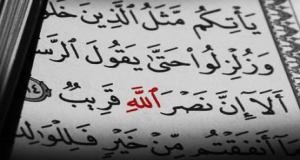 يَأْتِكُم مَّثَلُ ٱلَّذِينَ
وَزُلْزِلُوا۟ حَتَّىٰ يَقُولَ ٱلرَّس
أَلَآ إِنَّ نَصْرَ ٱللَّهِ قَرِيبٌ
مَآ أَنفَقْتُم مِّنْ خَيْرٍ فَلِلْوَٰلِدَ